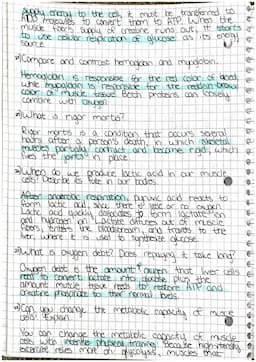 supply energy to the cell, it must be transferred to
ADP molecules to convert them to ATP. When the
muscle fiber's supply of creatine runs out, it starts
to use cellular respiration of glucose as its energy
source.
Compare and contrast hemoglobin and myoglobin.
Hemoglobin is responsible for the red color of blood,
while myoglobin is responsible for the reddish brown
color of muscle tissue. Both proteins can loosely
combine with oxygen.
What is rigor mortis?
Rigor mortis is a condition that occurs several
hours after a person's death, in which skeletal
muscles partially contract and become rigid, which
fixes the joints in place.
When do we produce lactic acid in our muscle
cells? Describe its fate in our bodies.
After anaerobic respiration, pyruvic acid reacts to
form lactic acid, since there is little or no oxygen.
Lactic acid quickly dissociates to form lactate ion
and hydrogen ion. Lactate diffuses out of muscle
fibers, enters the bloodstream, and travels to the
liver, where it is used to synthesize glucose.
What is oxygen debt? Does repaying it take long?
Oxygen debt is the amount of oxygen that liver cells
need to convert lactate into glucose, plus the
amount muscle tissue needs to restore ATP and
creatine phosphate to their normal levels.
Can you change the metabolic capacity of muscle
cells? Explain.
You can change the metabolic capacity of muscle
cells with intense physical training. Because high-intensity
exercise relies more on glycolysis, muscles that